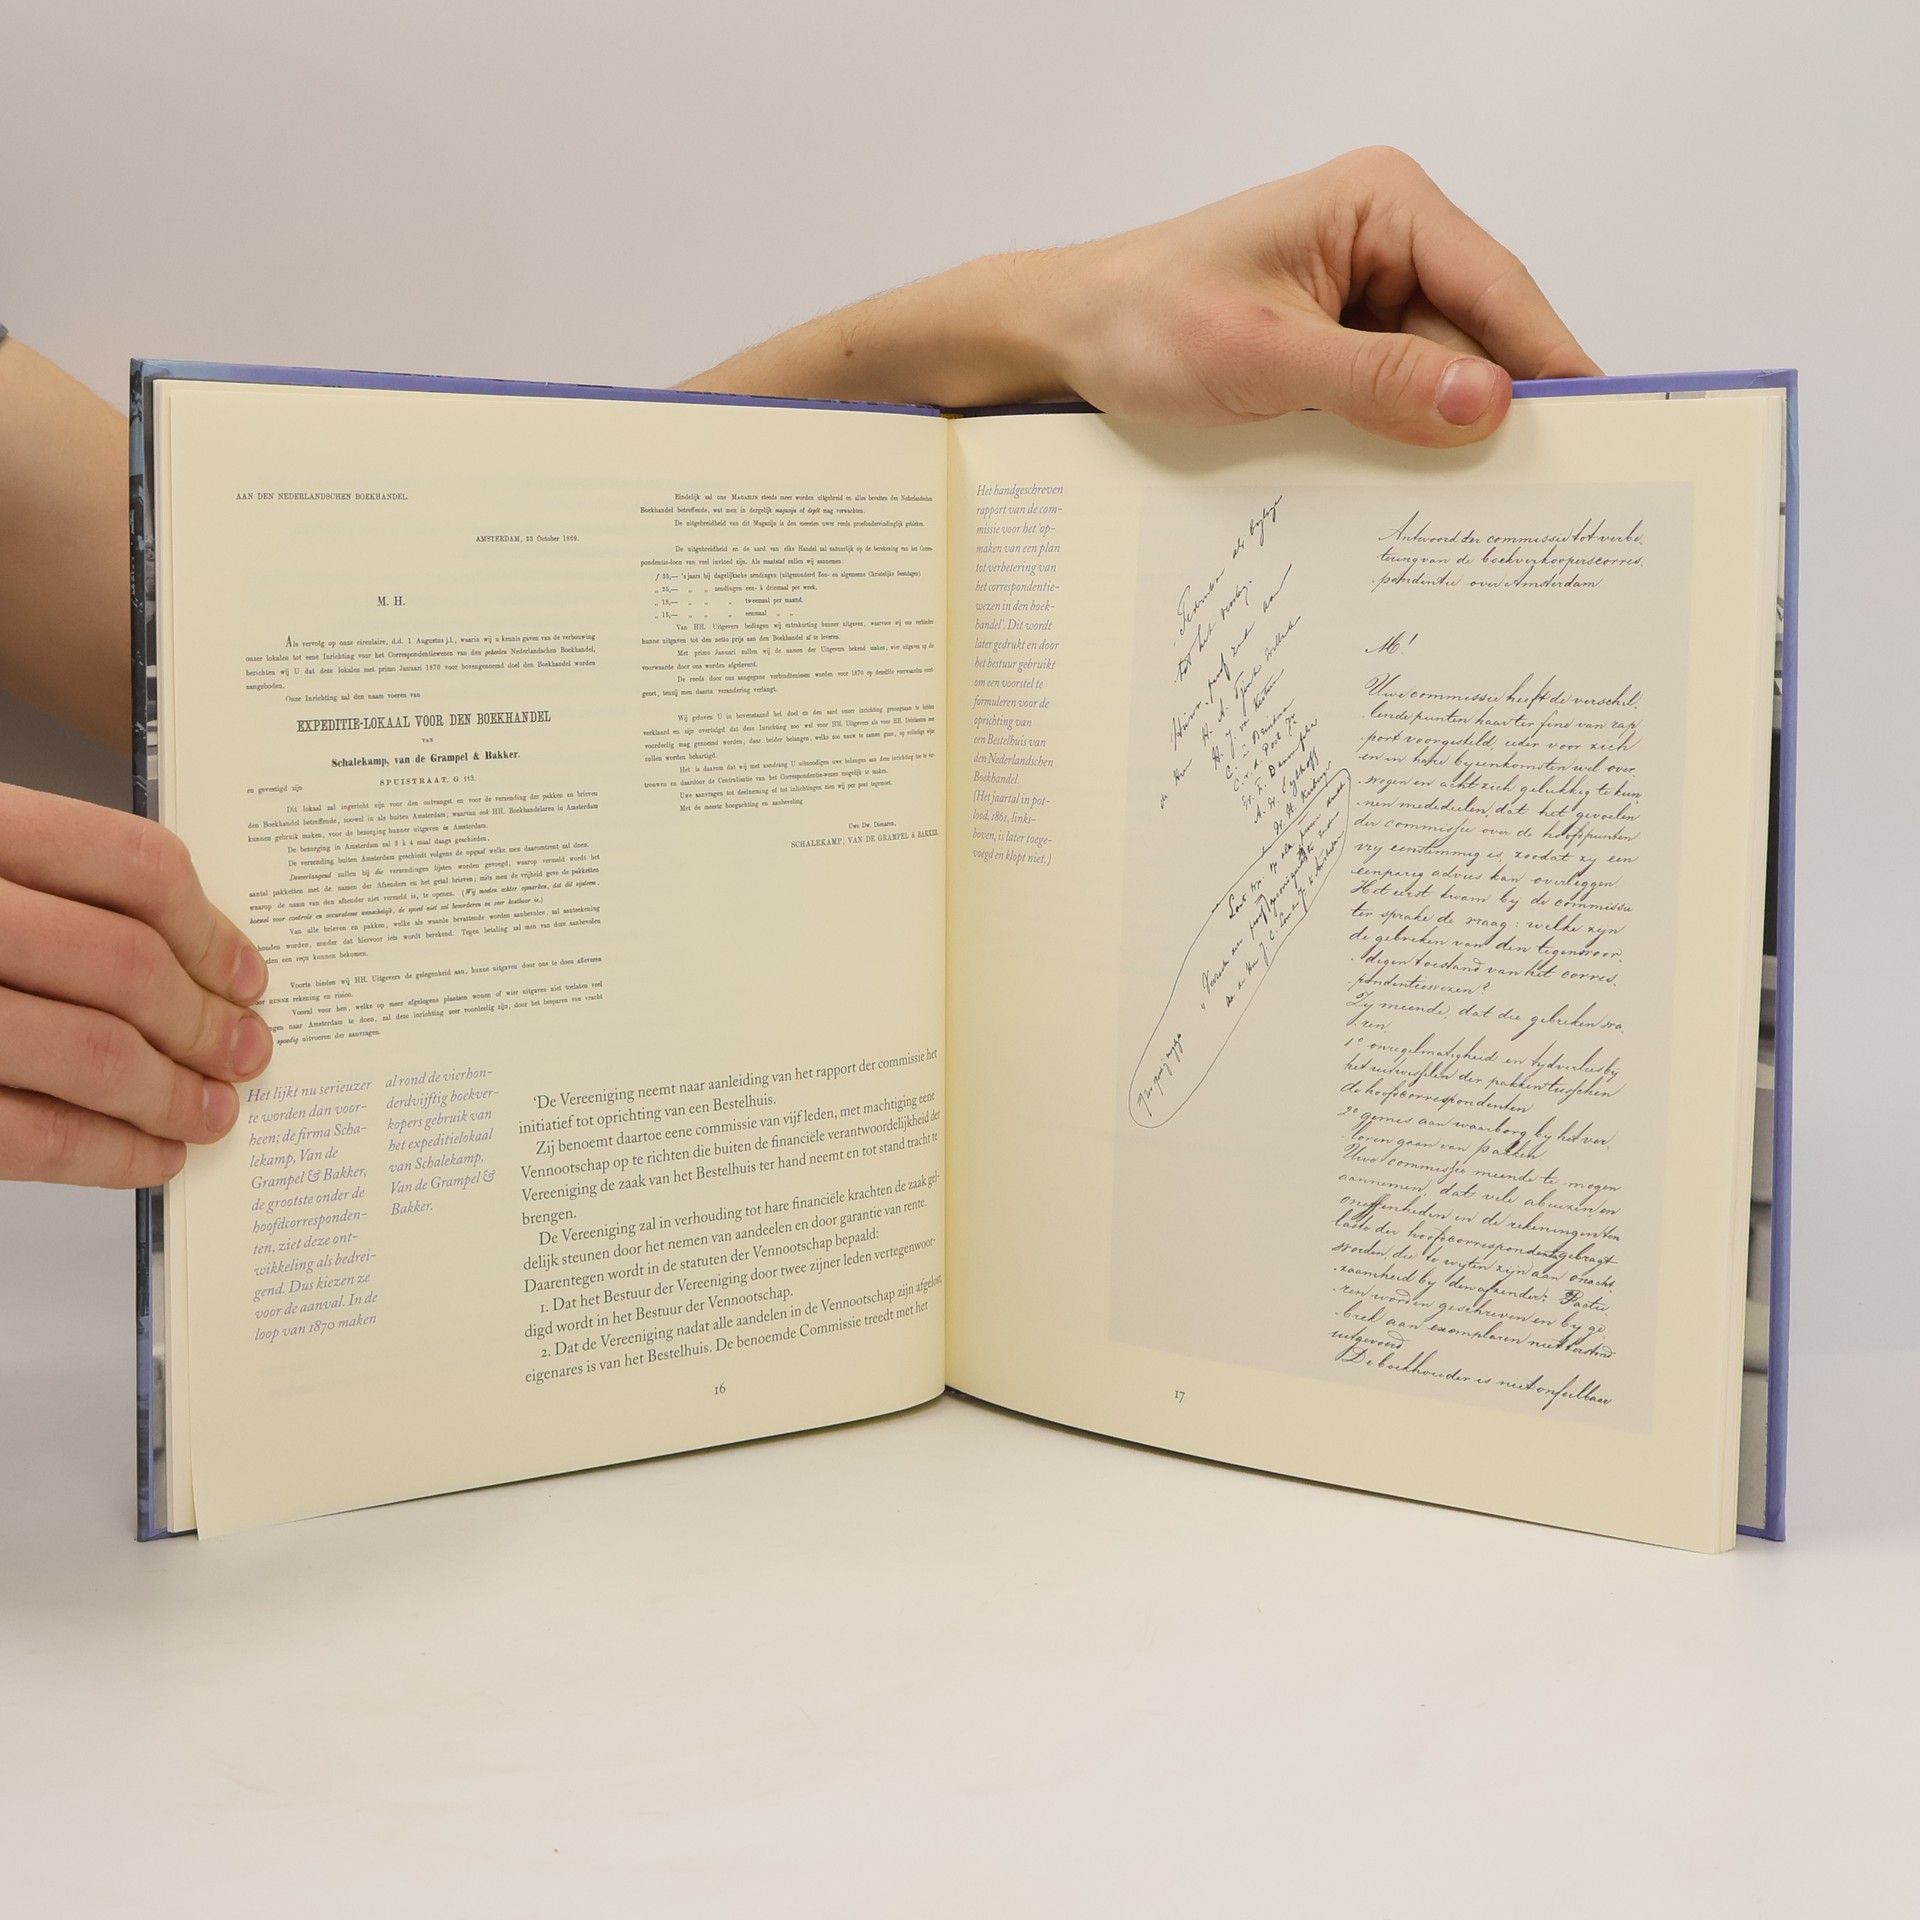 AAN DEN NEDERLANDSCHEN BOEKHANDEL.
AMSTERDAM, 23 October 1869.
M. H.
Als vervolg op onze circulaire, d.d. 1 Augustus j.l., waarin wij u kennis gaven van de verbouwing
onzer lokalen tot eene Inrichting voor het Correspondentiewezen van den geheelen Nederlandschen Boekhandel,
berichten wij U dat deze lokalen met primo Januari 1870 voor bovengenoemd doel den Boekhandel worden
aangeboden.
Onze Inrichting zal den naam voeren van
EXPEDITIE-LOKAAL VOOR DEN BOEKHANDEL
VAN
Schalekamp, van de Grampel & Bakker.
SPUISTRAAT, G 113.
en gevestigd zijn
Dit lokaal zal ingericht zijn voor den ontvangst en voor de verzending der pakken en brieven
den Boekhandel betreffende, zoowel in als buiten Amsterdam, waarvan ook HH. Boekhandelaren in Amsterdam
kunnen gebruik maken, voor de bezorging hunner uitgaven in Amsterdam.
De bezorging in Amsterdam zal 3 à 4 maal daags geschieden.
De verzending buiten Amsterdam geschiedt volgens de opgaaf welke men daaromtrent zal doen.
Desverlangend zullen bij die verzendingen lijsten worden gevoegd, waarop vermeld wordt het
aantal pakketten met de namen der Afzenders en het getal brieven; mits men de vrijheid geve de pakketten
waarop de naam van den afzender niet vermeld is, te openen. (Wij moeten echter opmerken, dat dit systeem,
hoewel voor controle en accuratesse wenschelijk, de spoed niet zal bevorderen en zeer kostbaar is.)
Van alle brieven en pakken, welke als waarde bevattende worden aanbevolen, zal aanteekening
houden worden, zonder dat hiervoor iets wordt berekend. Tegen betaling zal men van deze aanbevolen
een reçu kunnen bekomen.
Voorts bieden wij HH. Uitgevers de gelegenheid aan, hunne uitgaven door ons te doen afleveren
HUNNE rekening en risico.
Vooral voor hen, welke op meer afgelegene plaatsen wonen of wier uitgaven niet toelaten veel
naar Amsterdam te doen, zal deze inrichting zeer voordeelig zijn, door het besparen van vracht
spoedig uitvoeren der aanvragen.
Eindelijk zal ons MAGAZIJN steeds meer worden uitgebreid en alles bevatten den Nederlandschen
Boekhandel betreffende, wat men in dergelijk magazijn of depôt mag verwachten.
De uitgebreidheid van dit Magazijn is den meesten uwer reeds proefondervindelijk gebleken.
De uitgebreidheid en de aard van elks Handel zal natuurlijk op de berekening van het Corres-
pondentie-loon van veel invloed zijn. Als maatstaf zullen wij aannemen:
ƒ 35,— 's jaars bij dagelijksche zendingen (uitgezonderd Zon- en algemeene Christelijke feestdagen)
„ 25,— „ „ zendingen een- à driemaal per week.
„ 18,— „ „ „ tweemaal per maand.
„ 15,— „ „ „ eenmaal „ „
Van HH. Uitgevers bedingen wij extrakorting hunner uitgaven, waarvoor wij ons verbinden
hunne uitgaven tot den netto prijs aan den Boekhandel af te leveren.
Met primo Januari zullen wij de namen der Uitgevers bekend maken, wier uitgaven op de
voorwaarde door ons worden afgeleverd.
De reeds door ons aangegane verbindtenissen worden voor 1870 op dezelfde voorwaarden voort-
gezet, tenzij men daarin verandering verlangt.
Wij gelooven U in bovenstaand het doel en den aard onzer inrichting genoegzaam te hebben
verklaard en zijn overtuigd dat deze Inrichting zoo wel voor HH. Uitgevers als voor HH. Debitanten zeer
voordeelig mag genoemd worden, daar beider belangen, welke zoo nauw te zamen gaan, op volledige wijze
zullen worden behartigd.
Het is daarom dat wij met aandrang U uitnoodigen uwe belangen aan deze inrichting toe te ver-
trouwen en daardoor de Centralisatie van het Correspondentie-wezen mogelijk te maken.
Uwe aanvragen tot deelneming of tot inlichtingen zien wij per post tegemoet.
Met de meeste hoogachting en aanbeveling
Uwe Dw. Dienaren,
SCHALEKAMP, VAN DE GRAMPEL & BAKKER.
Het lijkt nu serieuzer
te worden dan voor-
heen; de firma Scha-
lekamp, Van de
Grampel & Bakker,
de grootste onder de
hoofdcorresponden-
ten, ziet deze ont-
wikkeling als bedrei-
gend. Dus kiezen ze
voor de aanval. In de
loop van 1870 maken
al rond de vierhon-
derdvijftig boekver-
kopers gebruik van
het expeditielokaal
van Schalekamp,
Van de Grampel &
Bakker.
'De Vereeniging neemt naar aanleiding van het rapport der commissie het
initiatief tot oprichting van een Bestelhuis.
Zij benoemt daartoe eene commissie van vijf leden, met machtiging eene
Vennootschap op te richten die buiten de financiële verantwoordelijkheid der
Vereeniging de zaak van het Bestelhuis ter hand neemt en tot stand tracht te
brengen.
De Vereeniging zal in verhouding tot hare financiële krachten de zaak gel-
delijk steunen door het nemen van aandeelen en door garantie van rente.
Daarentegen wordt in de statuten der Vennootschap bepaald:
1. Dat het Bestuur der Vereeniging door twee zijner leden vertegenwoor-
digd wordt in het Bestuur der Vennootschap.
2. Dat de Vereeniging nadat alle aandelen in de Vennootschap zijn afgelost,
eigenares is van het Bestelhuis. De benoemde Commissie treedt met het
16
Het handgeschreven
rapport van de com-
missie voor het 'op-
maken van een plan
tot verbetering van
het correspondentie-
wezen in den boek-
handel'. Dit wordt
later gedrukt en door
het bestuur gebruikt
om een voorstel te
formuleren voor de
oprichting van
een Bestelhuis van
den Nederlandschen
Boekhandel.
(Het jaartal in pot-
lood, 1861, links-
boven, is later toege-
voegd en klopt niet.)
Antwoord der commissie tot verbe-
tering van de boekverkooperscorres-
pondentie over Amsterdam.
M!
Uwe commissie heeft de verschil-
lende punten haar ter fine van rap-
port voorgesteld, ieder voor zich
en in hare byeenkomsten wel over-
wogen en acht zich gelukkig te kun-
nen mededeelen, dat het gevoelen
der commissie over de hoofdpunten
vry eenstemmig is, zoodat zy een
eenparig advies kan overleggen.
Het eerst kwam by de commissie
ter sprake de vraag: welke zyn
de gebreken van den tegenwoor-
digen toestand van het corres-
pondentiewezen?
Zy meende, dat die gebreken wa-
ren:
1º onregelmatigheid en tydverlies by
het uitwisselen der pakken tusschen
de hoofdcorrespondenten
2º gemis aan waarborg by het ver-
loren gaan van pakken
Uwe commissie meende te mogen
aannemen, dat vele abuizen en
oneffenheden in de rekeningen ten
laste der hoofdcorrespondenten gebragt
worden, die te wyten zyn aan onacht-
zaamheid by den afzender: Factu-
ren worden geschreven en by ge-
brek aan exemplaren niet terstond
uitgevoerd
De boekhouder is niet onfeilbaar
17